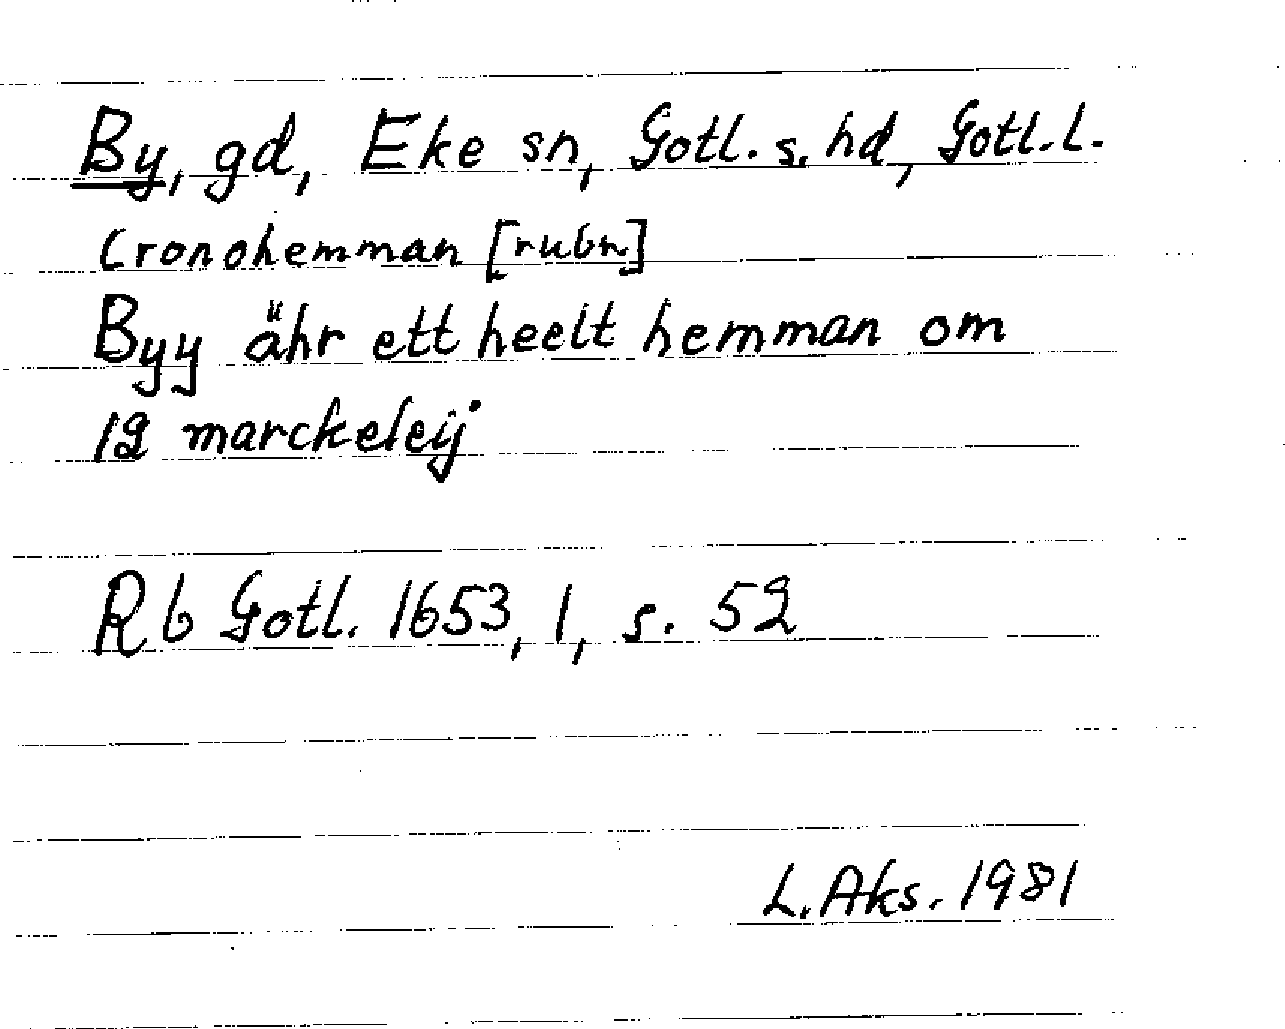 By, gd, Eke sn, Gotl. s. hd, Gotl. l.
Cronohemman [rubr]
Byy ähr ett heelt hemman om
12 marckeleij
Rb Gotl. 1653, 1, s. 52
L. Aks. 1981